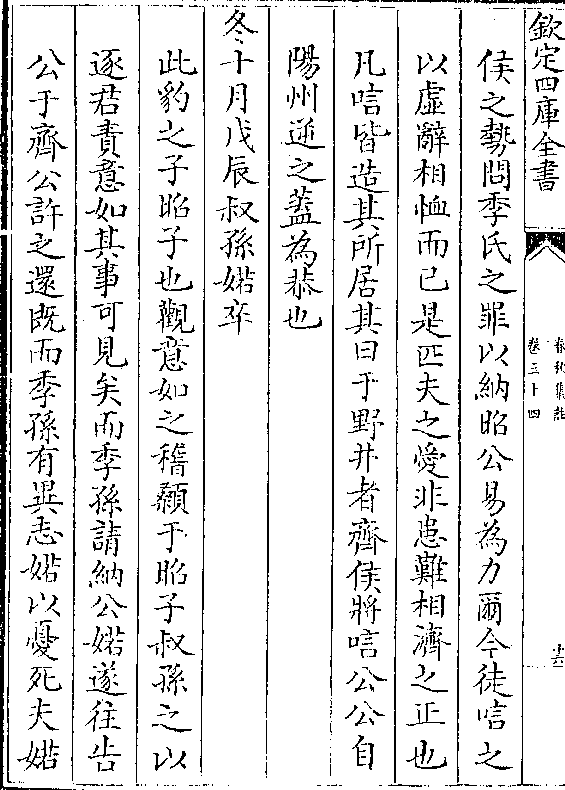 欽定四庫全書
春秋集註
卷三十四
十六
侯之勢問季氏之罪以納昭公易為力爾今徒唁之
以虛辭相恤而已是匹夫之愛非患難相濟之正也
凡唁皆造其所居其曰于野井者齊侯將唁公公自
陽州逆之蓋為恭也
冬十月戊辰叔孫婼卒
此豹之子昭子也觀意如之稽顙于昭子叔孫之以
逐君責意如其事可見矣而季孫請納公婼遂往告
公于齊公許之還既而季孫有異志婼以憂死夫婼